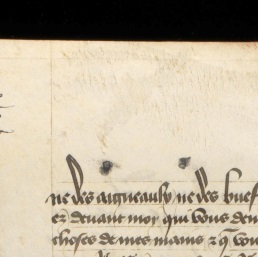 ne des aigneaulx ne des buef
et deuant moy qui vous dem
choses de mes mains et q̄ vou